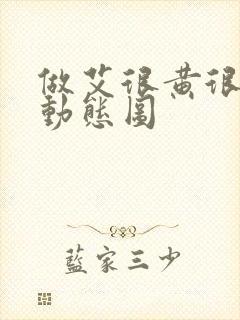 做艾很黄很
動態圖``
藍家三少